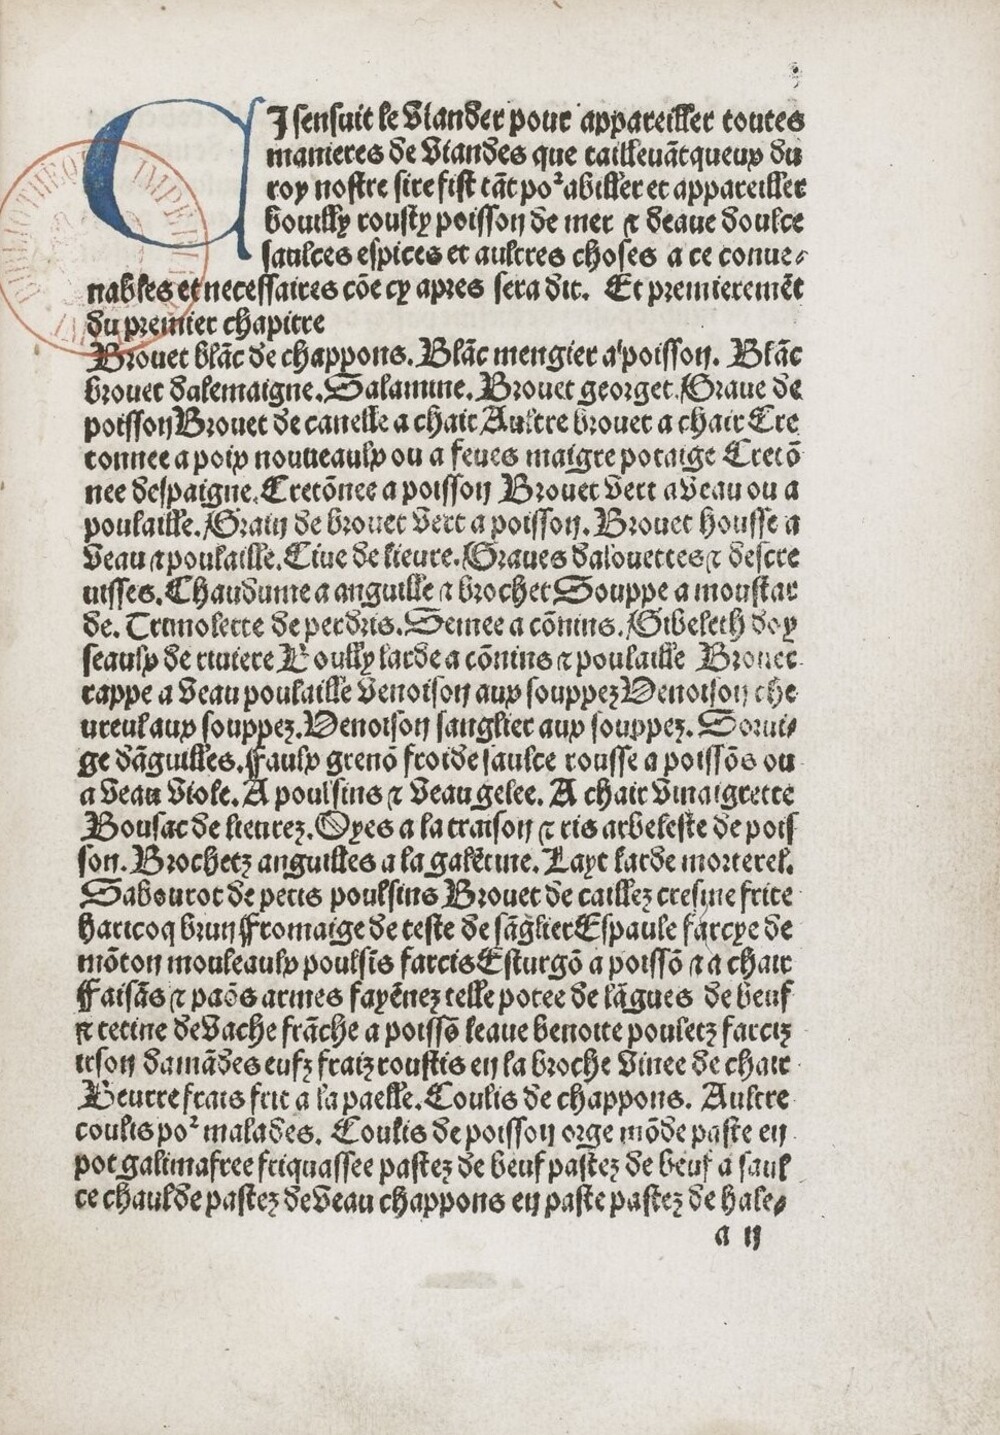 CI sensuit le Viander pour appareiller toutes
manieres de Viandes que taillevãt queux du
roy nostre sire fist tãt poꝛ abiller et appareiller
bouilly rousty poisson de mer ⁊ deaue doulce
saulces espices et aultres choses a ce conue-
nables et necessaires cõe cy apres sera dit. Et premieremẽt
du premier chapitre
Brouet blãc de chappons. Blãc mengier a poisson. Blãc
brouet dalemaigne. Salamine. Brouet georget. Graue de
poisson Brouet de canelle a chair Aultre brouet a chair Cre
tonnee a poix nouueaulx ou a feues maigre potaige Cretõ
nee despaigne. Cretõnee a poisson Brouet Vert a Veau ou a
poulaille. Grain de brouet Vert a poisson. Brouet housse a
Veau ⁊ poulaille. Ciue de lieure. Graues dalouettes ⁊ descre
uisses. Chaudume a anguille ⁊ brochet Souppe a moustar
de. Trimolette de perdris. Semee a cõnins. Gibeleth doy
seaulx de riuiere Boully larde a cõnins ⁊ poulaille Brouet
rappe a Veau poulaille Venoison aux souppez Venoison che
ureul aux souppez. Venoison sanglier aux souppez. Sorui-
ge dãguilles. Faulx grenõ froide saulce rousse a poissõs ou
a Veau Viole. A poulsins ⁊ Veau gelee. A chair Vinaigrette
Bousac de lieurez. Oyes a la traison ⁊ ris arbeleste de pois
son. Brochetz anguilles a la galẽtine. Layt larde morterel.
Sabourot de petis poulsins Brouet de caillez cresme frite
haricoq brun Fromaige de teste de sãglier Espaule farcye de
mõton mouleaulx poulsĩs farcis Esturgõ a poissõ ⁊ a chair
Faisãs ⁊ paõs armes fayẽnez telle potee de lãgues de beuf
⁊ tetine de Vache frãche a poissõ leaue benoite pouletz farciz
irson damãdes eufz fraiz roustis en la broche Vinee de chair
Beurre frais frit a la paelle. Coulis de chappons. Aultre
coulis poꝛ malades. Coulis de poisson orge mõde paste en
pot galimafree friquassee pastez de beuf pastez de beuf a saul
ce chaulde pastez de Veau chappons en paste pastez de hale-
a ij
BIBLIOTHEQUE IMPERIALE